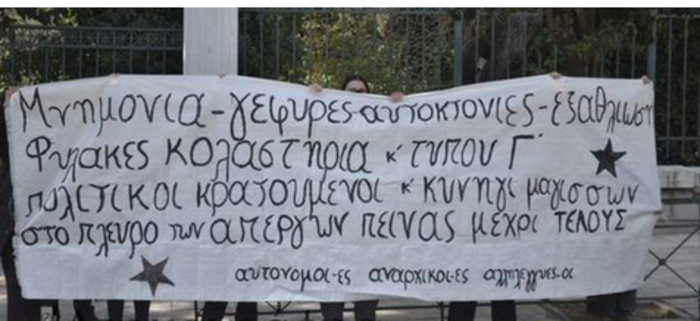 Μνημόνια-γέφυρες-αυτοκτονίες-εξαθλίωση
Φυλακές κολαστήρια κ' τύπου Γ'
πολιτικοί κρατούμενοι κ' κυνήγι μαγισσών
στο πλευρό των απεργών πείνας μέχρι ΤΕΛΟΥΣ
αυτόνομοι-ες αναρχικοί-ες αλληλέγγυες-οι